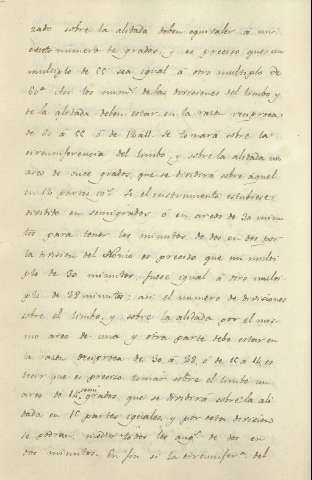 zado sobre la alidada deben equivaler á un
exacto número de grados, y es preciso que un
multiplo de 55 sea igual á otro multiplo de
60" los num.s de las divisiones del limbo y
de la alidada deben estar en la razon reciproca
de 60 á 55 ó de 12 á 11. Se tomará sobre la
circumferencia del limbo, y sobre la alidada un
arco de once grados, que se dividirá sobre aquel
en partes Si el instrumento estubiere
dividido en semigrados ó en arcos de 30 minu
tos para tener los minutos de dos en dos por
la division del Nonio es preciso que un multi
plo de 30 minutos fuese igual á otro multi
plo de 28 minutos; asi el numero de divisiones
sobre el limbo y sobre la alidada por el mis
mo arco de una y otra parte debe estar en
la razon reciproca de 30 á 28 ó de 15 á 14, es
decir que es preciso tomar sobre el limbo un
arco de 14 semi grados, que se dividirá sobre la ali
dada en 15 partes iguales, y por esta division
se podran medir todos los ang.s de dos en
dos minutos. En fin si la circumfer.a del